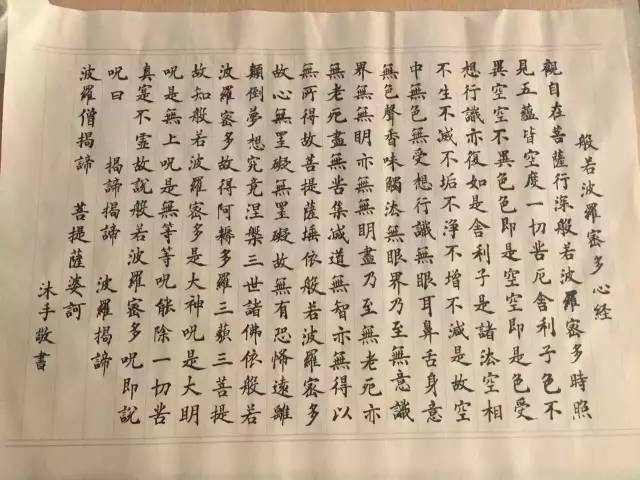 般若波羅蜜多心經
觀自在菩薩行深般若波羅蜜多時照
見五蘊皆空度一切苦厄舍利子色不
異空空不異色色即是空空即是色受
想行識亦復如是舍利子是諸法空相
不生不滅不垢不淨不增不減是故空
中無色無受想行識無眼耳鼻舌身意
無色聲香味觸法無眼界乃至無意識
界無無明亦無無明盡乃至無老死亦
無老死盡無苦集滅道無智亦無得以
無所得故菩提薩埵依般若波羅蜜多
故心無罣礙無罣礙故無有恐怖遠離
顛倒夢想究竟涅槃三世諸佛依般若
波羅蜜多故得阿耨多羅三藐三菩提
故知般若波羅蜜多是大神呪是大明
呪是無上呪是無等等呪能除一切苦
真寔不虛故說般若波羅蜜多呪即說
呪曰 揭諦揭諦 波羅揭諦
波羅僧揭諦 菩提薩婆訶
沐手敬書